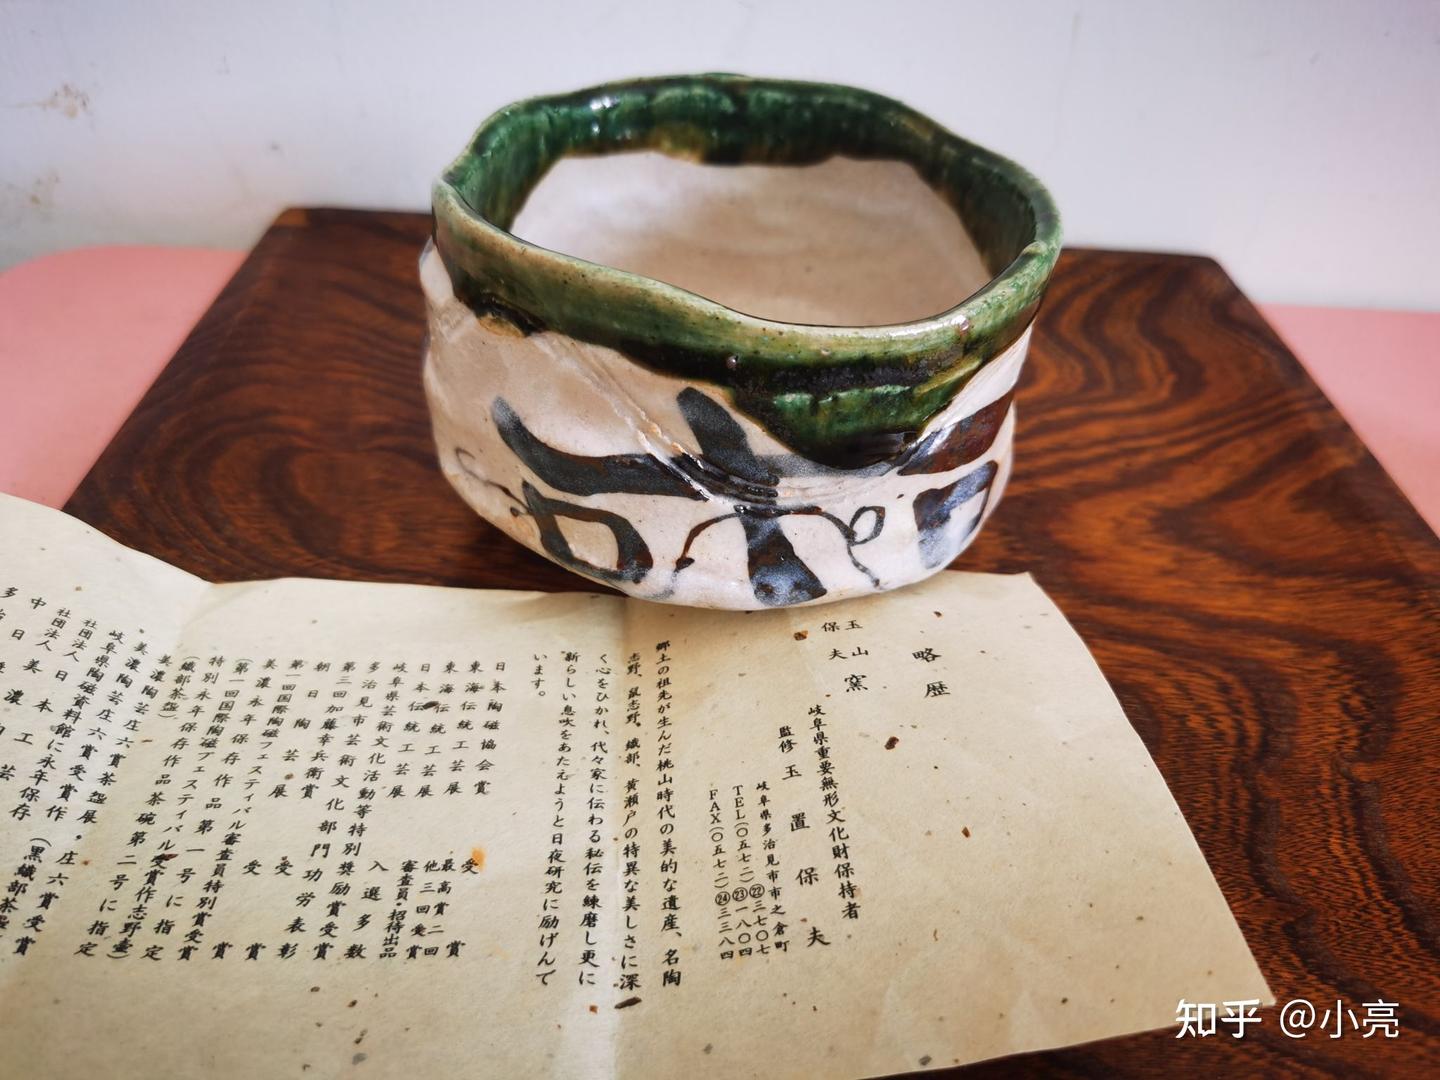 略歴
玉山窯
保夫
岐阜県重要無形文化財保持者
監修 玉置保夫
岐阜県多治見市市之倉町
TEL(〇五七二)㉒三七〇七
㉓一八〇四
FAX(〇五七二)㉔三三八四
郷土の祖先が生んだ桃山時代の美的な遺産、名陶
志野、鼠志野、織部、黄瀬戸の特異な美しさに深
く心をひかれ、代々家に伝わる秘伝を練磨し更に
新らしい息吹をあたえようと日夜研究に励げんで
います。
日本陶磁協会賞 受賞
東海伝統工芸展 最高賞二回
他三回受賞
日本伝統工芸展 審査員・招待出品
岐阜県芸術文化活動等特別奨励賞受賞
多治見市芸術文化部門功労表彰
第三回加藤幸兵衛賞 受賞
朝日陶芸展 受賞
第一回国際陶磁フェスティバル審査員特別賞受賞
美濃永年保存作品第一号に指定
(第一回国際陶磁フェスティバル受賞作志野壷)
特別永年保存作品茶碗第二号に指定
(織部茶盌)
美濃陶芸庄六賞茶盌展。庄六賞受賞
美濃陶芸庄六賞受賞作(黒織部茶盌
岐阜県陶磁資料館に永年保存
社団法人日本工芸
社団法人美濃
中日